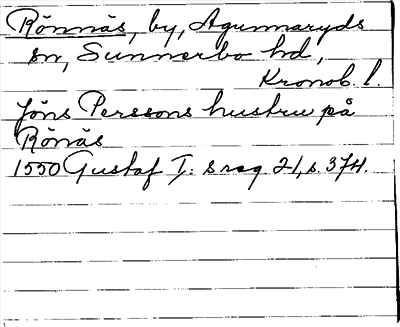 Rönnäs, by, Agunnaryds
sn, Sunnerbo hd,
Kronob. l.
Jöns Perssons hustru på
Rönäs
1550 Gustaf I: s reg 21, s. 374.